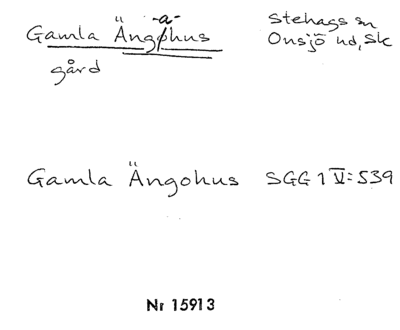 Gamla Ängahus
Stehags sn
Onsjö hd, Sk
gård
Gamla Ängohus SGG 1 V:539
Nr 15913